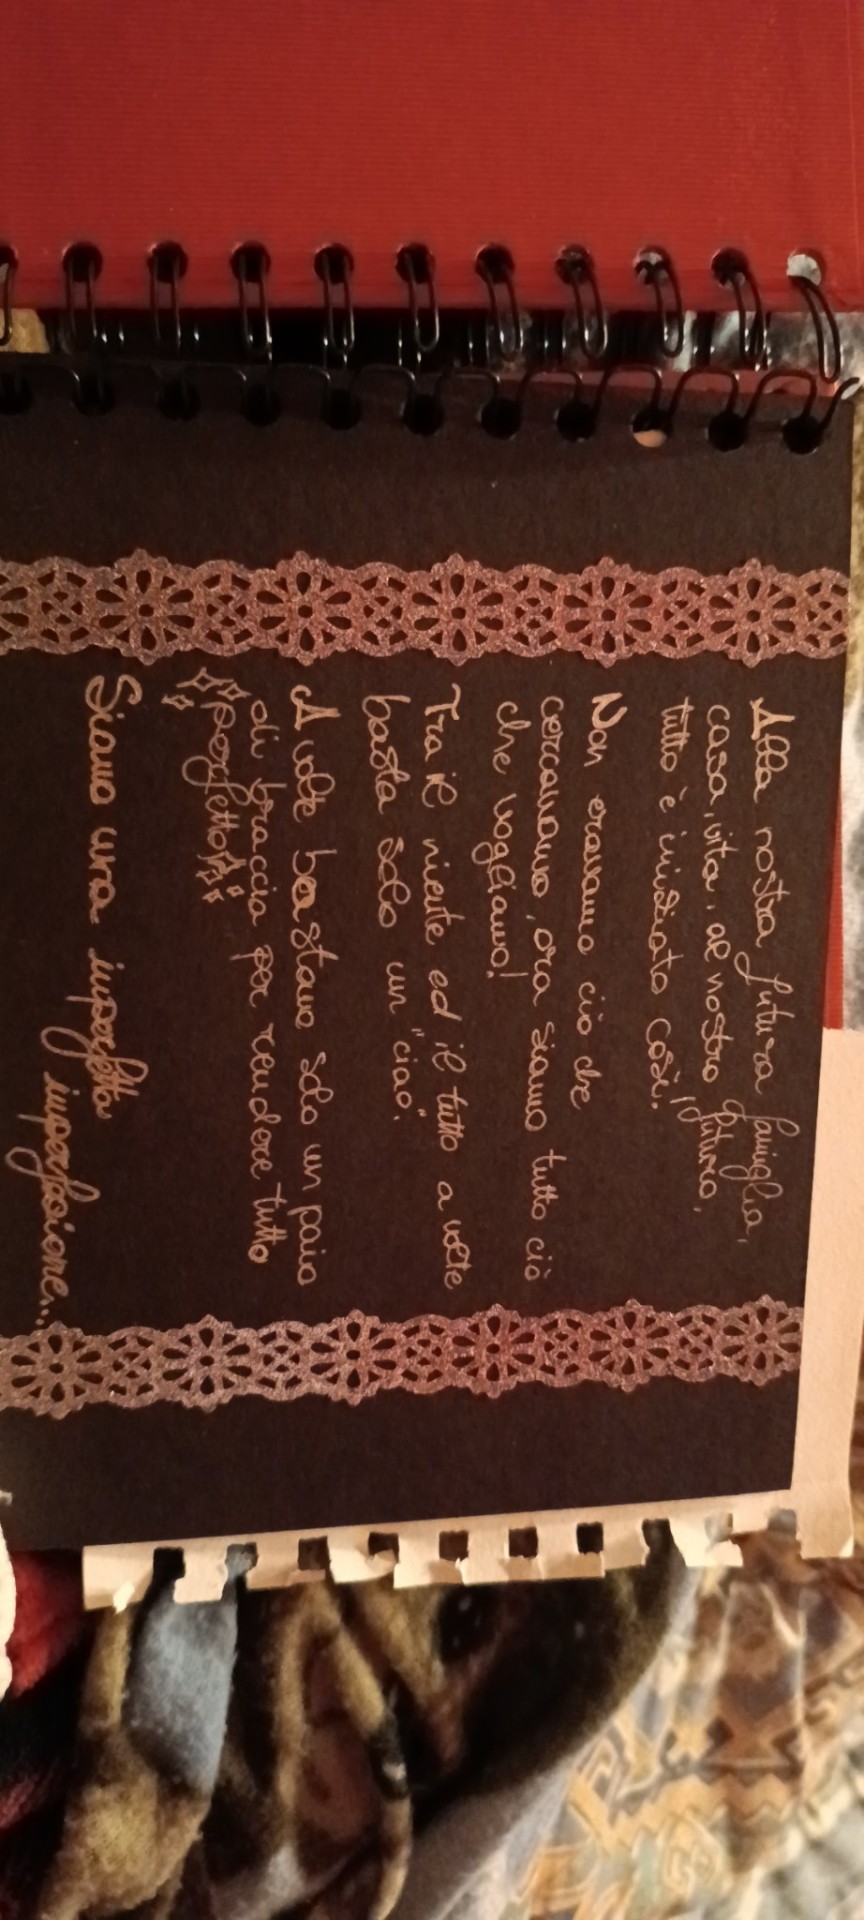 Alla nostra futura famiglia,
casa, vita, al nostro futuro,
tutto è iniziato così.
Non eravamo ciò che
cercavamo, ora siamo tutto ciò
che vogliamo!
Tra il niente ed il tutto a volte
basta solo un "ciao".
A volte bastano solo un paio
di braccia per rendere tutto
perfetto
Siamo una imperfetta
imperfezione...